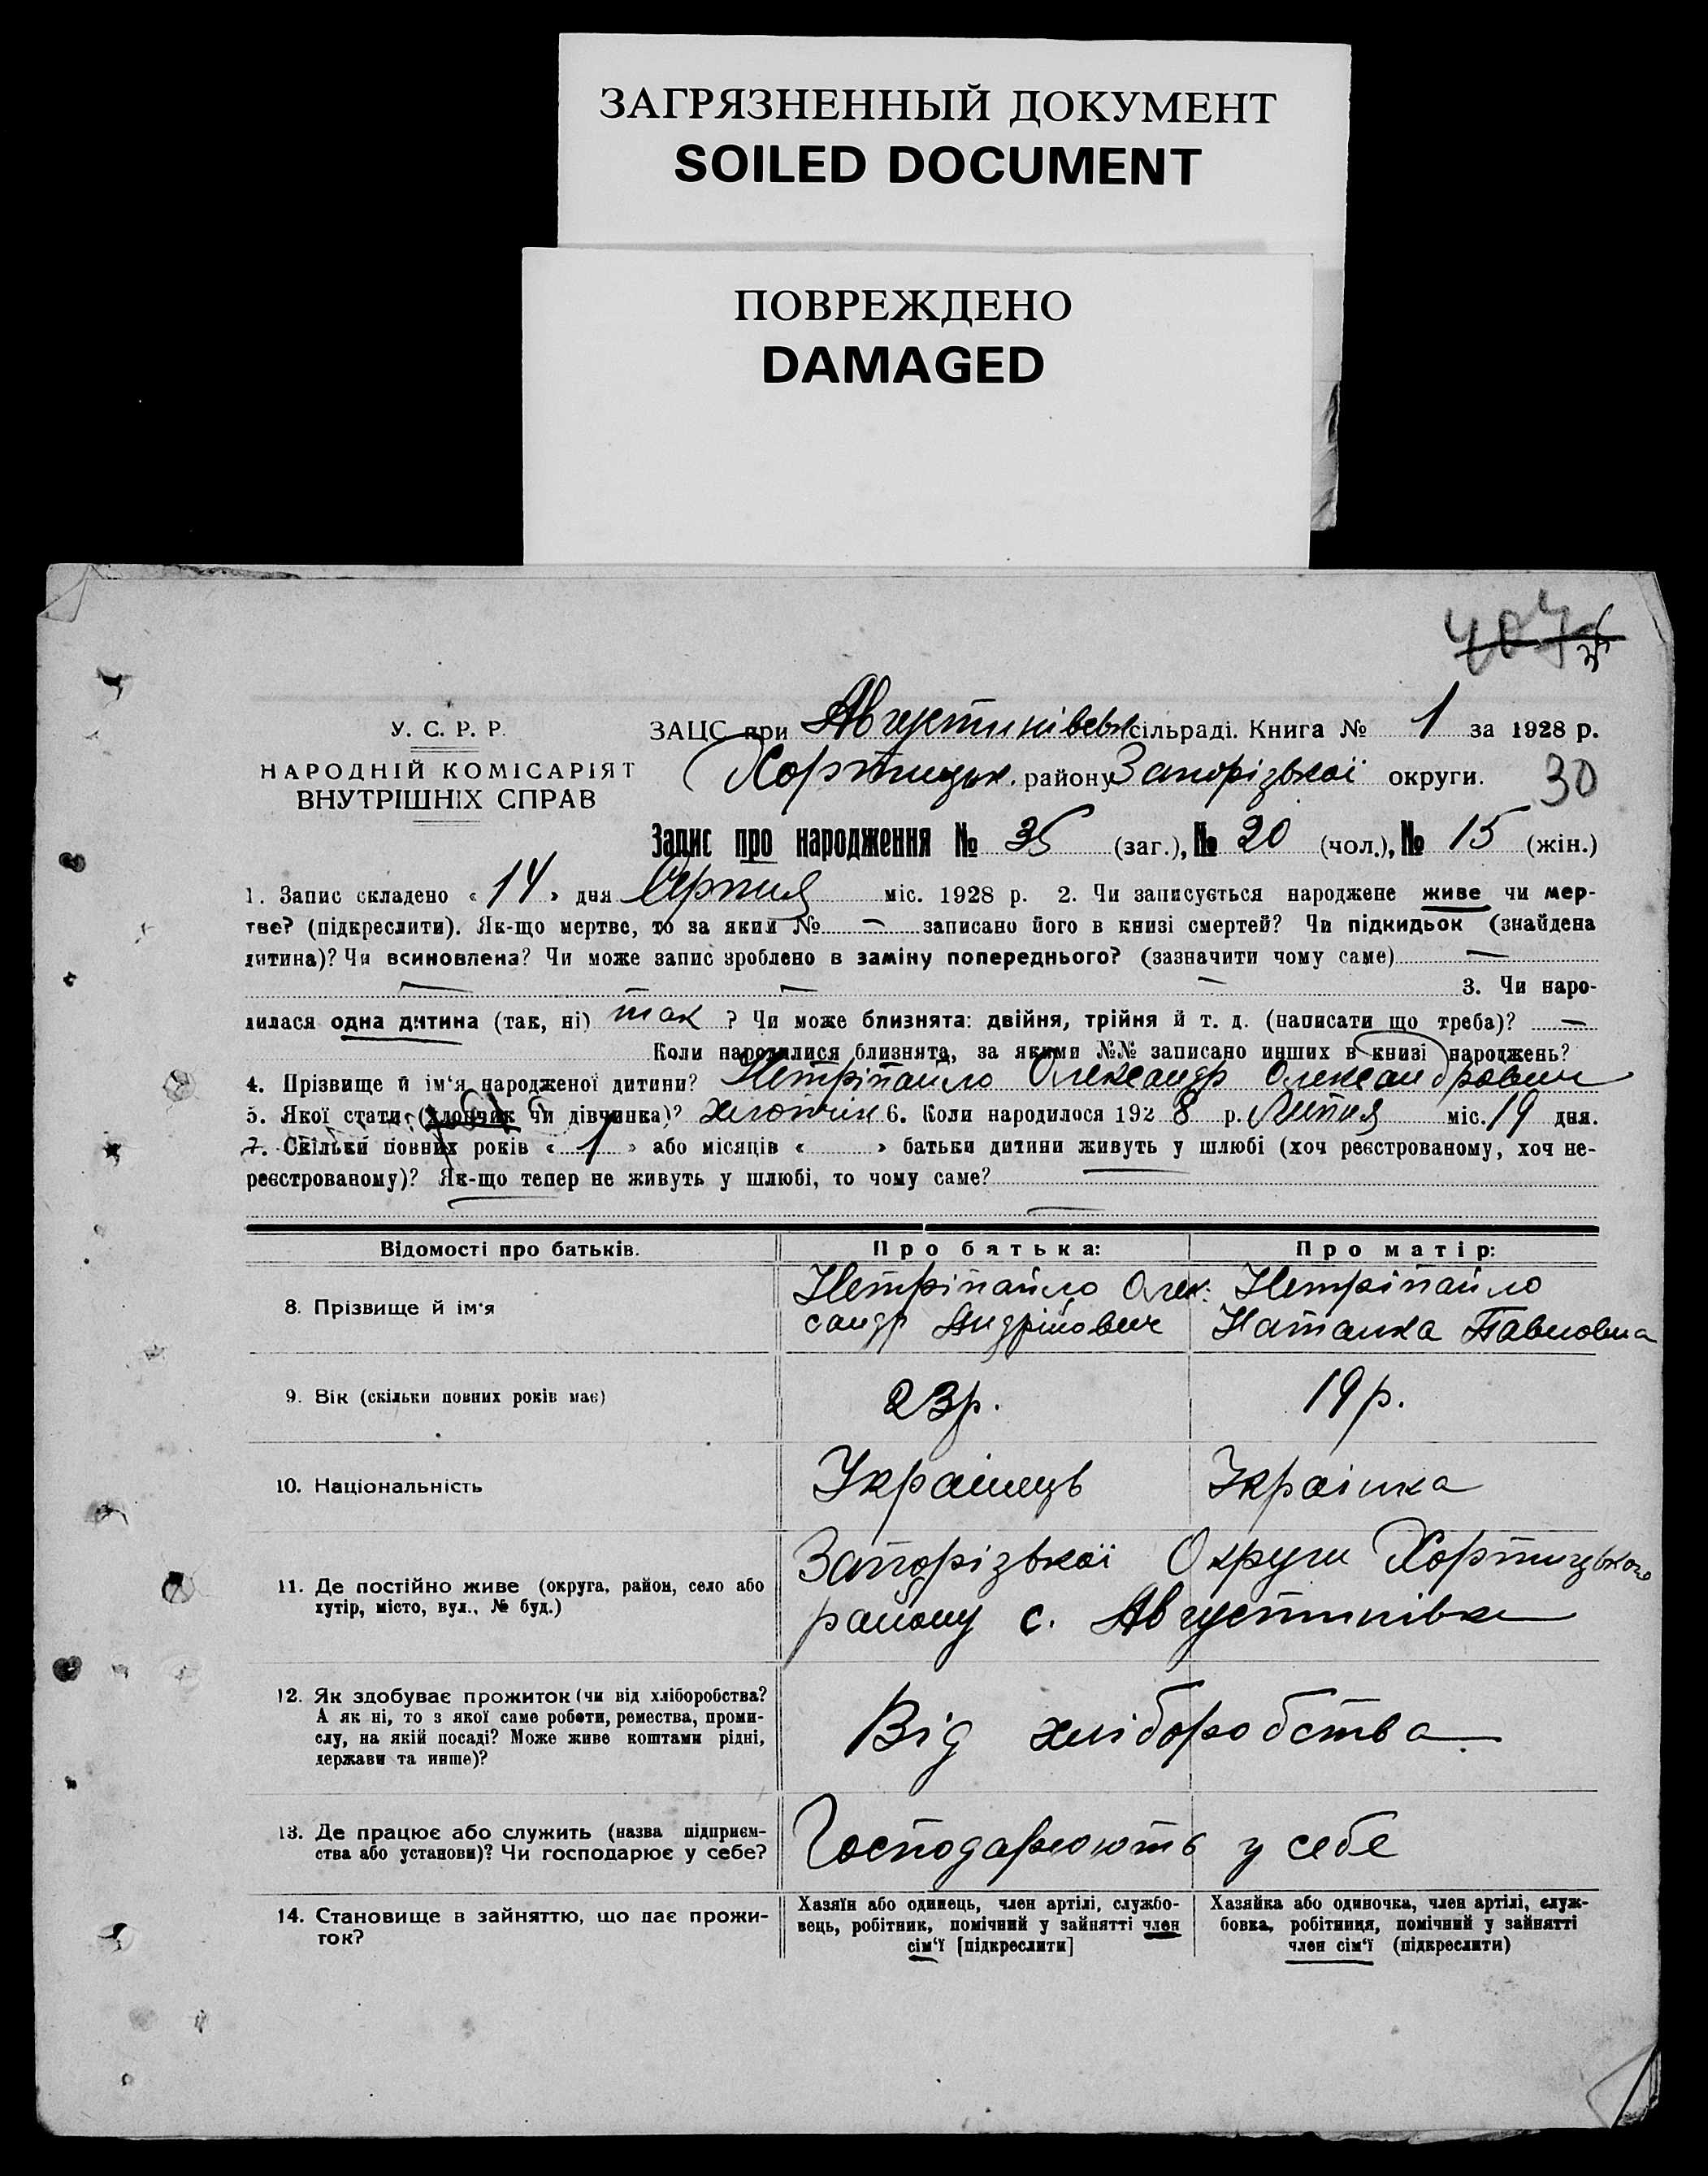 ЗАГРЯЗНЕННЫЙ ДОКУМЕНТ
SOILED DOCUMENT
ПОВРЕЖДЕНО
DAMAGED
У. С. Р. Р.
НАРОДНІЙ КОМІСАРІЯТ
ВНУТРІШНІХ СПРАВ
ЗАЦС при Августинівськ сільраді. Книга № 1 за 1928 р.
Хортицьк. району Запорізької округи. 30
Запис про народження № 35 (заг.), № 20 (чол.), № 15 (жін.)
1. Запис складено « 14 » дня Серпня міс. 1928 р. 2. Чи записується народжене живе чи мер-
тве? (підкреслити). Як-що мертве, то за яким № — записано його в книзі смертей? Чи підкидьок (знайдена
дитина)? Чи всиновлена? Чи може запис зроблено в заміну попереднього? (зазначити чому саме) —
— — — 3. Чи наро-
дилася одна дитина (так, ні) так ? Чи може близнята: двійня, трійня й т. д. (написати що треба)? —
Коли народилися близнята, за якими №№ записано инших в книзі народжень?
4. Прізвище й ім‘я народженої дитини? Нетріпайло Олександр Олександрович
5. Якої стати (хлопчик чи дівчинка)? хлопчик 6. Коли народилося 192 8 р. Липня міс. 19 дня.
7. Скільки повних років « 1 » або місяців « » батьки дитини живуть у шлюбі (хоч реєстрованому, хоч не-
реєстрованому)? Як-що тепер не живуть у шлюбі, то чому саме? —
—
Відомості про батьків. Про батька: Про матір:
8. Прізвище й ім‘я
Нетріпайло Олек-
сандр Андрійович
Нетріпайло
Наталка Павловна
9. Вік (скільки повних років має) 23р. 19р.
10. Національність Українець Українка
11. Де постійно живе (округа, район, село або
хутір, місто, вул., № буд.)
Запорізької Округи Хортицького
району с. Августинівка
12. Як здобуває прожиток (чи від хліборобства?
А як ні, то з якої саме роботи, ремества, проми-
слу, на якій посаді? Може живе коштами рідні,
держави та инше)?
Від хліборобства
13. Де працює або служить (назва підприєм-
ства або установи)? Чи господарює у себе?
Господарюють у себе
14. Становище в зайняттю, що дає прожи-
ток?
Хазяїн або одинець, член артілі, службо-
вець, робітник, помічний у зайнятті член
сім‘ї [підкреслити]
Хазяйка або одиночка, член артілі, служ-
бовка, робітниця, помічний у зайнятті
член сім‘ї (підкреслити)